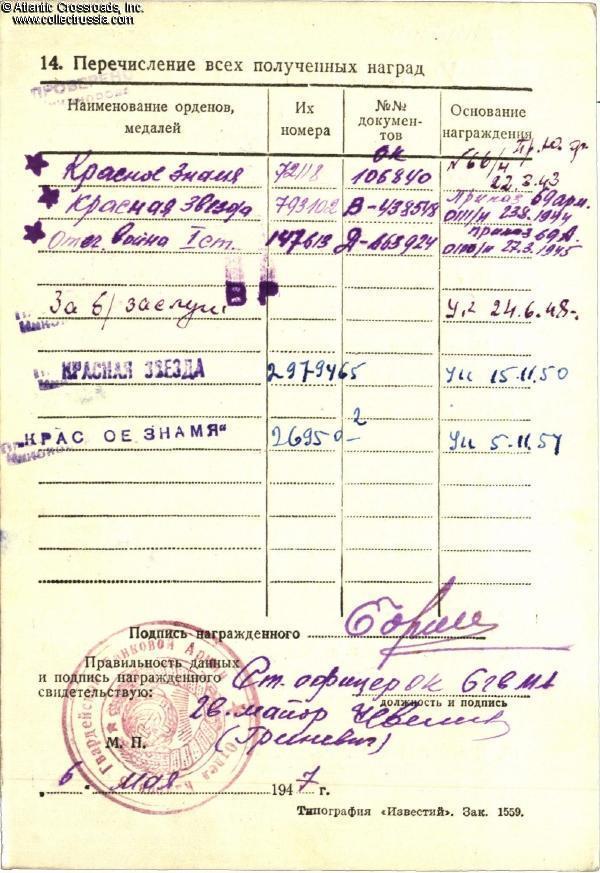 © Atlantic Crossroads, Inc.
www.collectrussia.com
14. Перечисление всех полученных наград
ПРОВЕРЕНО
Наименование орденов, медалей
Их номера
№№ документов
Основание награждения
Красное Знамя 72118 ОК 106840 22.3.43
Красная звезда 793102 В-438548 Приказ 69 арм. 238 1944
Отег. война I ст. 147613 Д-663924 приказ 69А. 27.3.1945
ВР
За б/заслуги Ук 24.6.48-
КРАСНАЯ ЗВЕЗДА 2979465 Ук 15.11.50
2
„КРАС ОЕ ЗНАМЯ" 26950- Ук 5.11.51
Подпись награжденного
Правильность данных
и подпись награжденного
свидетельствую:
Ст. офицер ОК
должность и подпись
гв. майор
(Гриневич)
М. П.
6 мая 1947 г.
Типография «Известий». Зак. 1559.